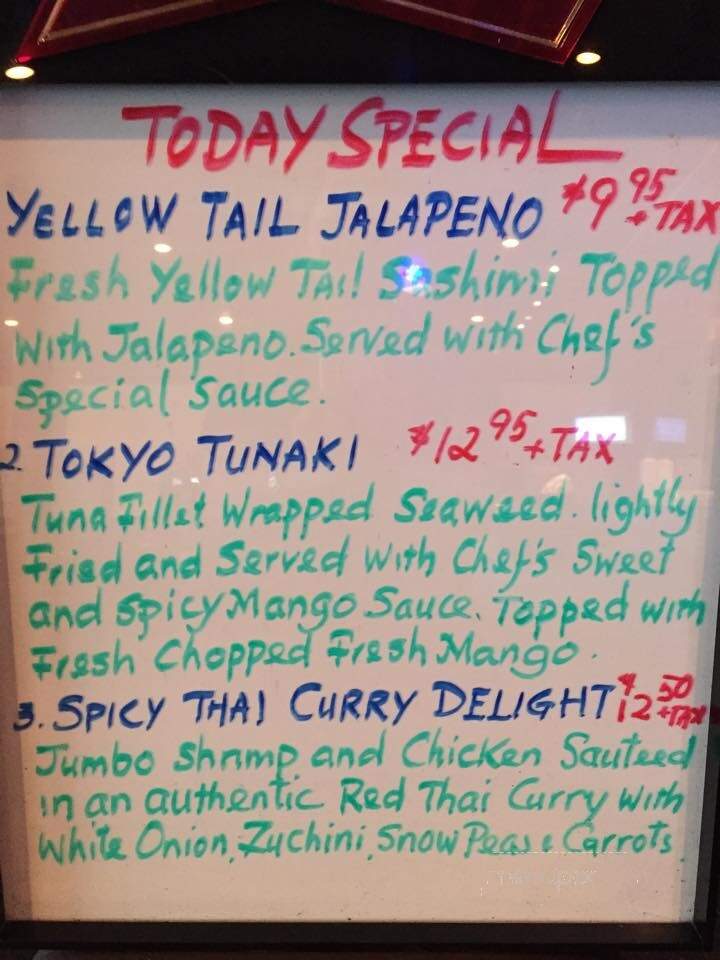 TODAY SPECIAL
YELLOW TAIL JALAPENO $9 95 + TAX
Fresh Yellow Tail Sashimi Topped
with Jalapeno. Served with Chef's
Special Sauce.
2. TOKYO TUNAKI $12 95 + TAX
Tuna Fillet Wrapped Seaweed. lightly
Fried and Served with Chef's Sweet
and Spicy Mango Sauce. Topped with
Fresh Chopped Fresh Mango.
3. SPICY THAI CURRY DELIGHT $12 50 + TAX
Jumbo Shrimp and Chicken Sauteed
in an authentic Red Thai Curry with
White Onion, Zuchini, Snow Peas & Carrots